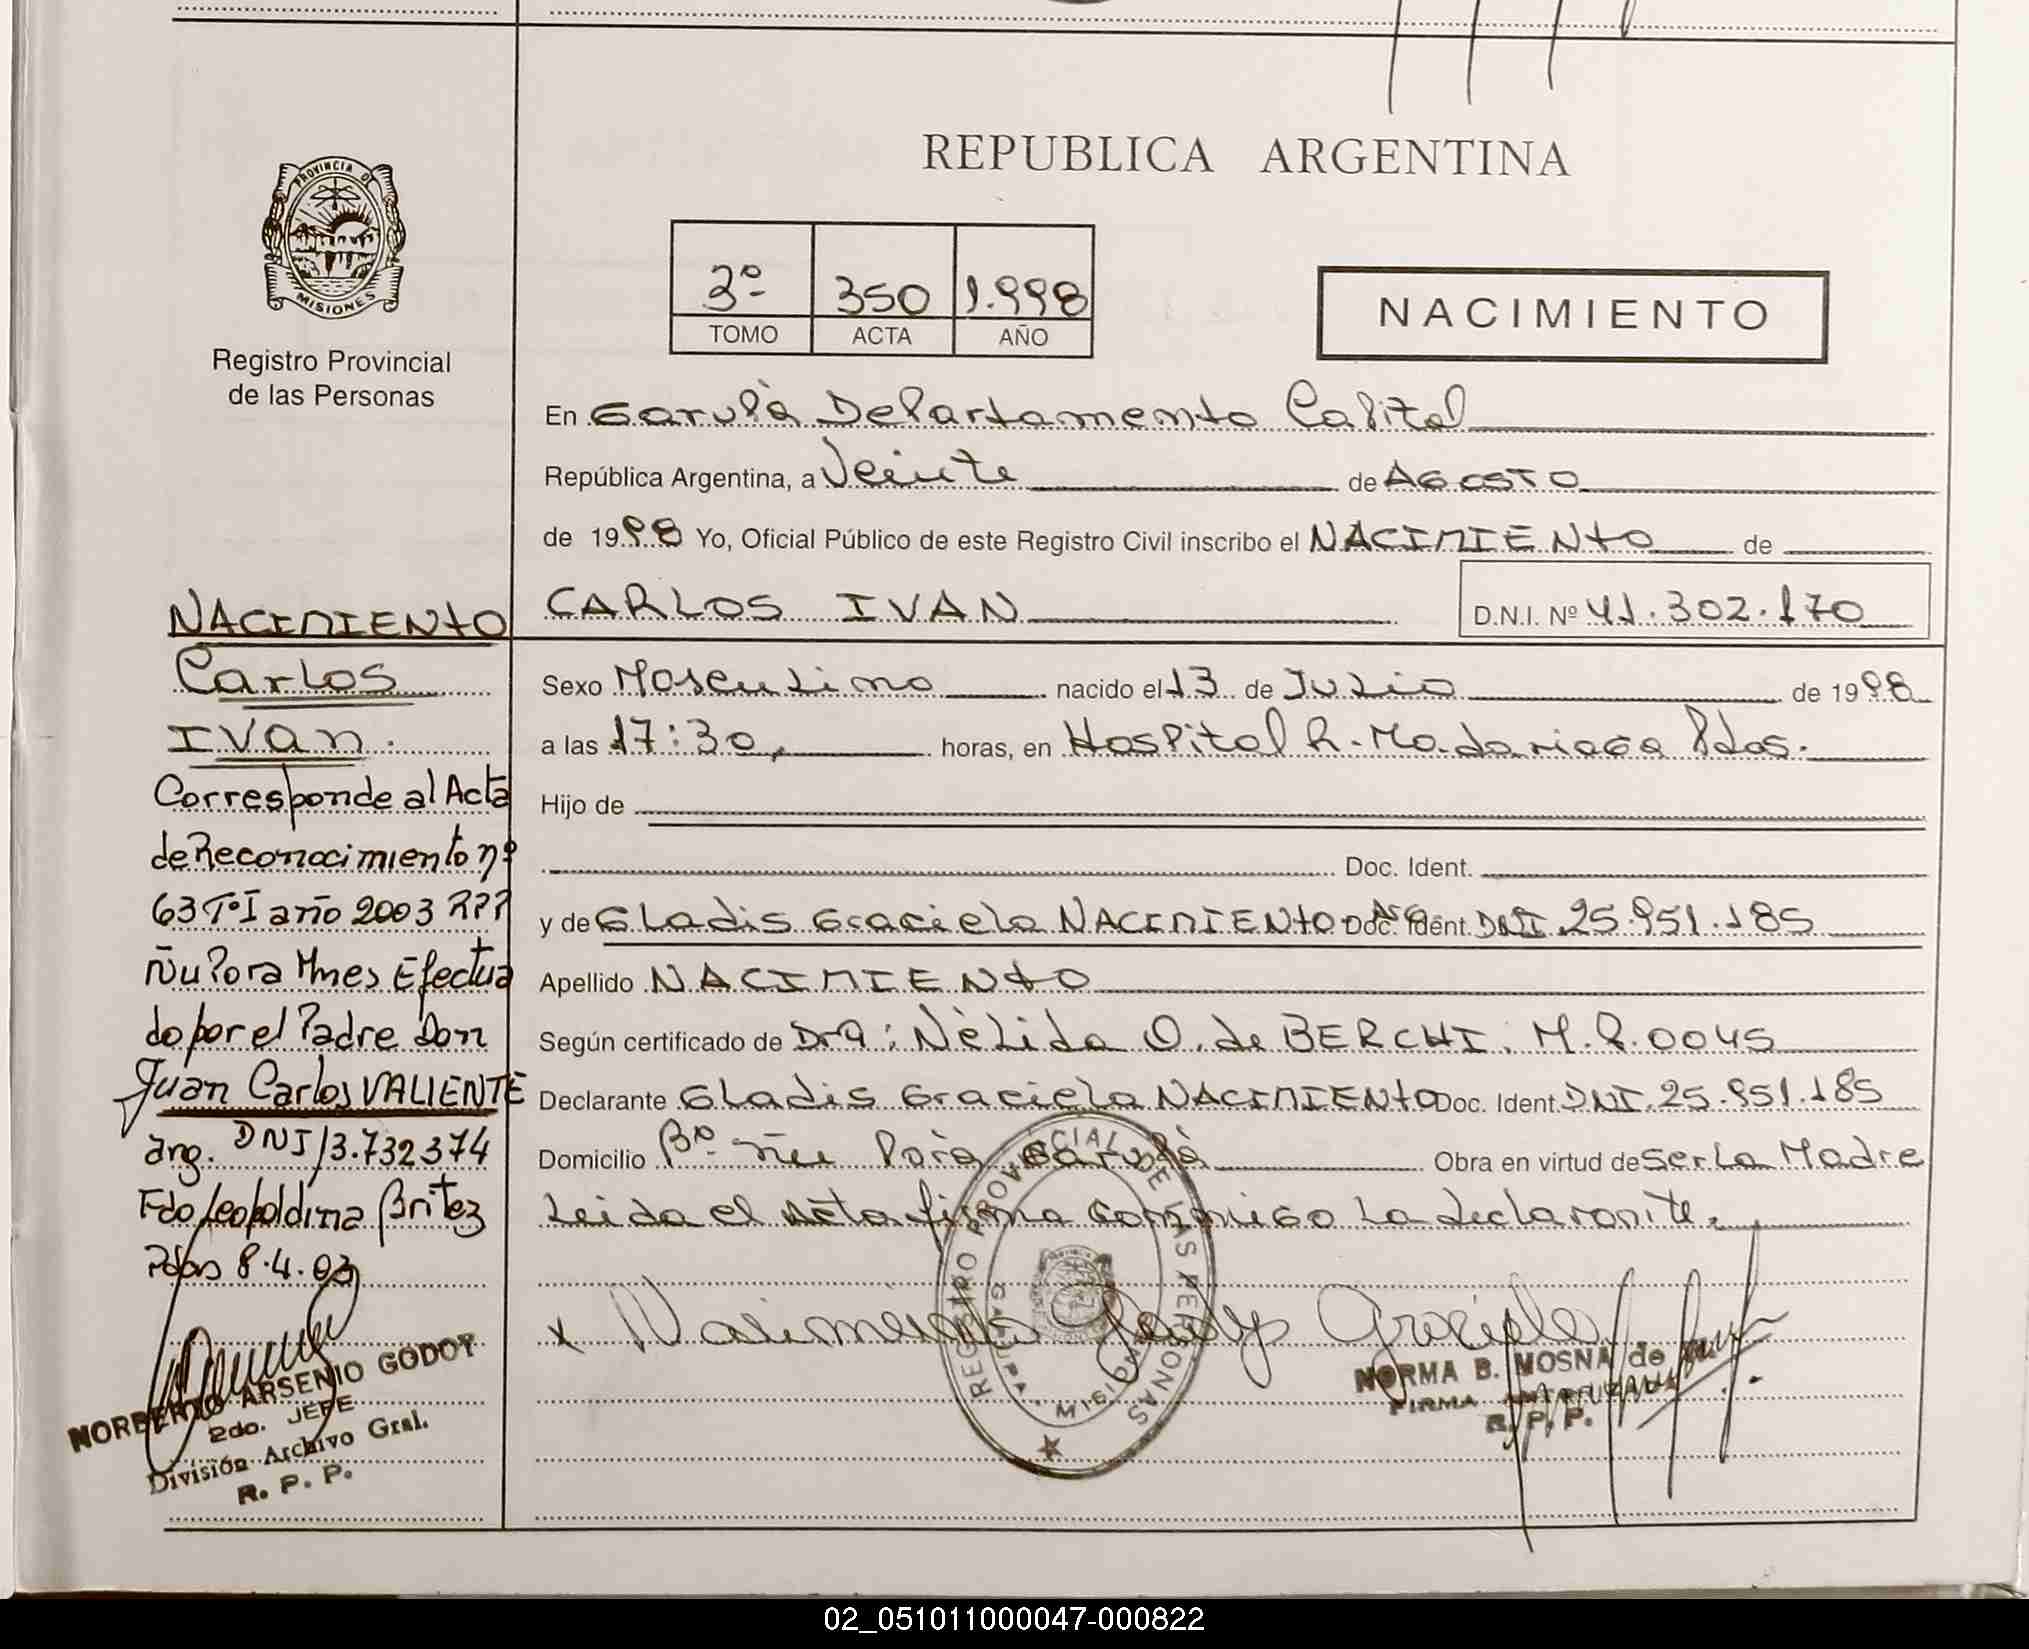 PROVINCIA DE
MISIONES
Registro Provincial
de las Personas
REPUBLICA ARGENTINA
3º 350 1.998
TOMO ACTA AÑO
NACIMIENTO
En Garupà Departamento Capital
República Argentina, a Veinte de AGOSTO
de 1998 Yo, Oficial Público de este Registro Civil inscribo el NACIMIENTO de
CARLOS IVAN D.N.I. Nº 41.302.170
Sexo Masculino nacido el 13 de Julio de 1998
a las 17:30, horas, en Hospital R. Madariaga Pdas.
Hijo de
Doc. Ident.
y de Gladis Graciela NACIMIENTO Arg. Doc. Ident. DNI. 25.951.185
Apellido NACIMIENTO
Según certificado de Dra: Nèlida O. de BERCHI. M.P. 0045
Declarante Gladis Graciela NACIMIENTO Doc. Ident. DNI. 25.951.185
Domicilio Bº Ñu Porà Garupà Obra en virtud de ser La Madre
Leida el Acta firma conmigo La declarante.
x Nacimiento Gladys Graciela
REGISTRO PROVINCIAL DE LAS PERSONAS
GARUPA MISIONES
NORMA B. MOSNA de
FIRMA AUTORIZADA
R. P. P.
NACIMIENTO
Carlos
IVan.
Corresponde al Acta
de Reconocimiento nº
63 Tº I año 2003 RPP
Ñu Pora Mnes Efectua
do por el Padre Don
Juan Carlos VALIENTE
arg. DNI 13.732374
Fdo Leopoldina Britez
Pdas 8.4.03
NORBERTO ARSENIO GODOY
2do. JEFE
División Archivo Gral.
R. P. P.
02_051011000047-000822